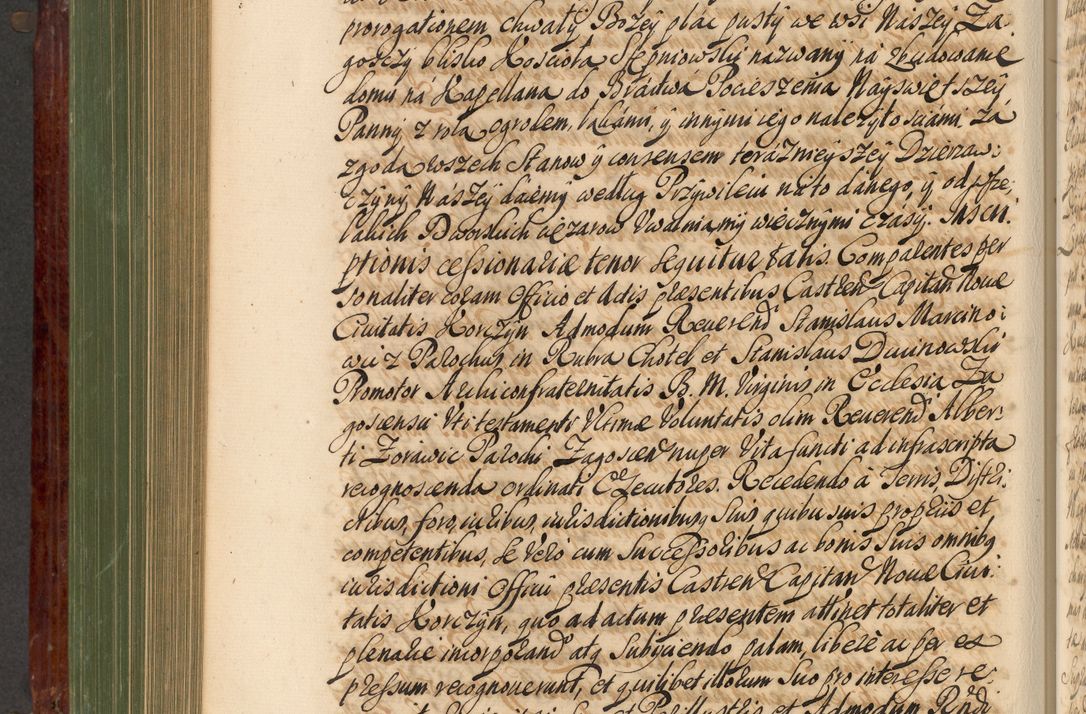 prorogationem chwały Bożey plac pusty we wsi Naszey Za-
goszczy blisko Kościoła Stępniowski nazwany na zbudowanie
domu na Kapellana do Bractwa Pocieszenia Nayświętszey
Panny z rola ogrodem, łakami, y innymi iego należytościami. Za
zgoda wszech Stanow y consensem terazнieyszey Dzierzaw:
czyny Naszey daiemy według Przywileiu na to danego, y od wsze:
lakich Dworskich ciężarow Uwalniamy wiecznymi czasy. Inscri:
ptionis cessionariæ tenor sequitur talis. Comparentes per
sonaliter coram Officio et Actis præsentibus Castren Capitan Novæ
Civitatis Korczyn Admodum Reverend Stanislaus Marcino:
wicz Parochus in Rubra Chotel et Stanislaus Duninowski
Promotor Archiconfraternitatis B. M. Virginis in Ecclesia Za
gosciensi Uti testamenti Ultimæ Voluntatis olim Reverend Alber:
ti Zorawic Parochi Zagoscien nuper Vita functi ad infrascripta
recognoscenda ordinati Exccutores. Recedendo à Terris, Distri:
ctibus, foro, iuribus, iurisdictionibusq suis quibus suis propriis et
competentibus, se verò cum Successoribus ac bonis suis omnibq
iurisdictioni Officii præsentis Castren Capitan Novæ Civi:
tatis Korczyn, quo ad actum præsentem attinet totaliter et
plenarie incorporand atq subijciendo palam, liberè ac per ex
pressum recognoverunt, et quilibet illorum suo pro interesse re:
et Perillustris et Admodum Rndi